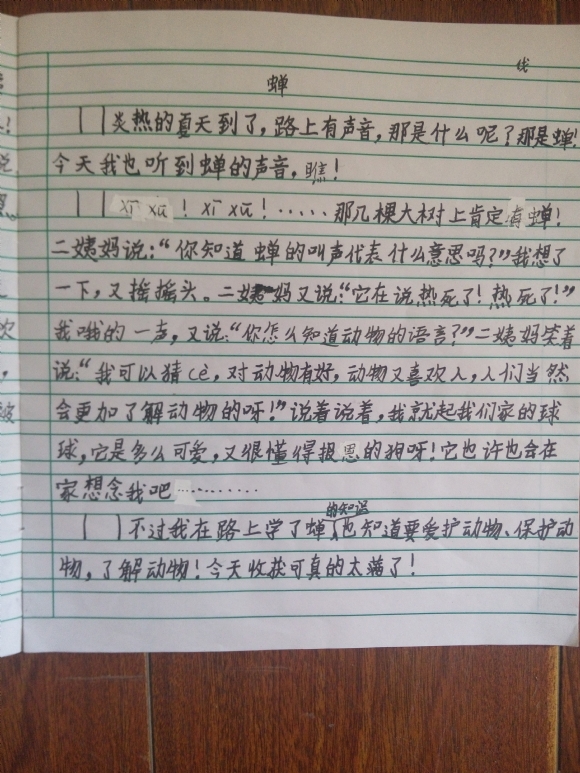 线
蝉
炎热的夏天到了，路上有声音，那是什么呢？那是蝉！
今天我也听到蝉的声音。瞧！
xī xū！xī xū！……那几棵大树上肯定有蝉！
二姨妈说：“你知道蝉的叫声代表什么意思吗？”我想了
一下，又摇摇头。二姨妈又说：“它在说热死了！热死了！”
我哦的一声，又说：“你怎么知道动物的语言？”二姨妈笑着
说：“我可以猜cè，对动物有好，动物又喜欢人，人们当然
会更加了解动物的呀！”说着说着，我就起我们家的球
球，它是多么可爱，又很懂得报恩的狗呀！它也许也会在
家想念我吧………
不过我在路上学了蝉的知识也知道要爱护动物、保护动
物，了解动物！今天收获可真的太满了！